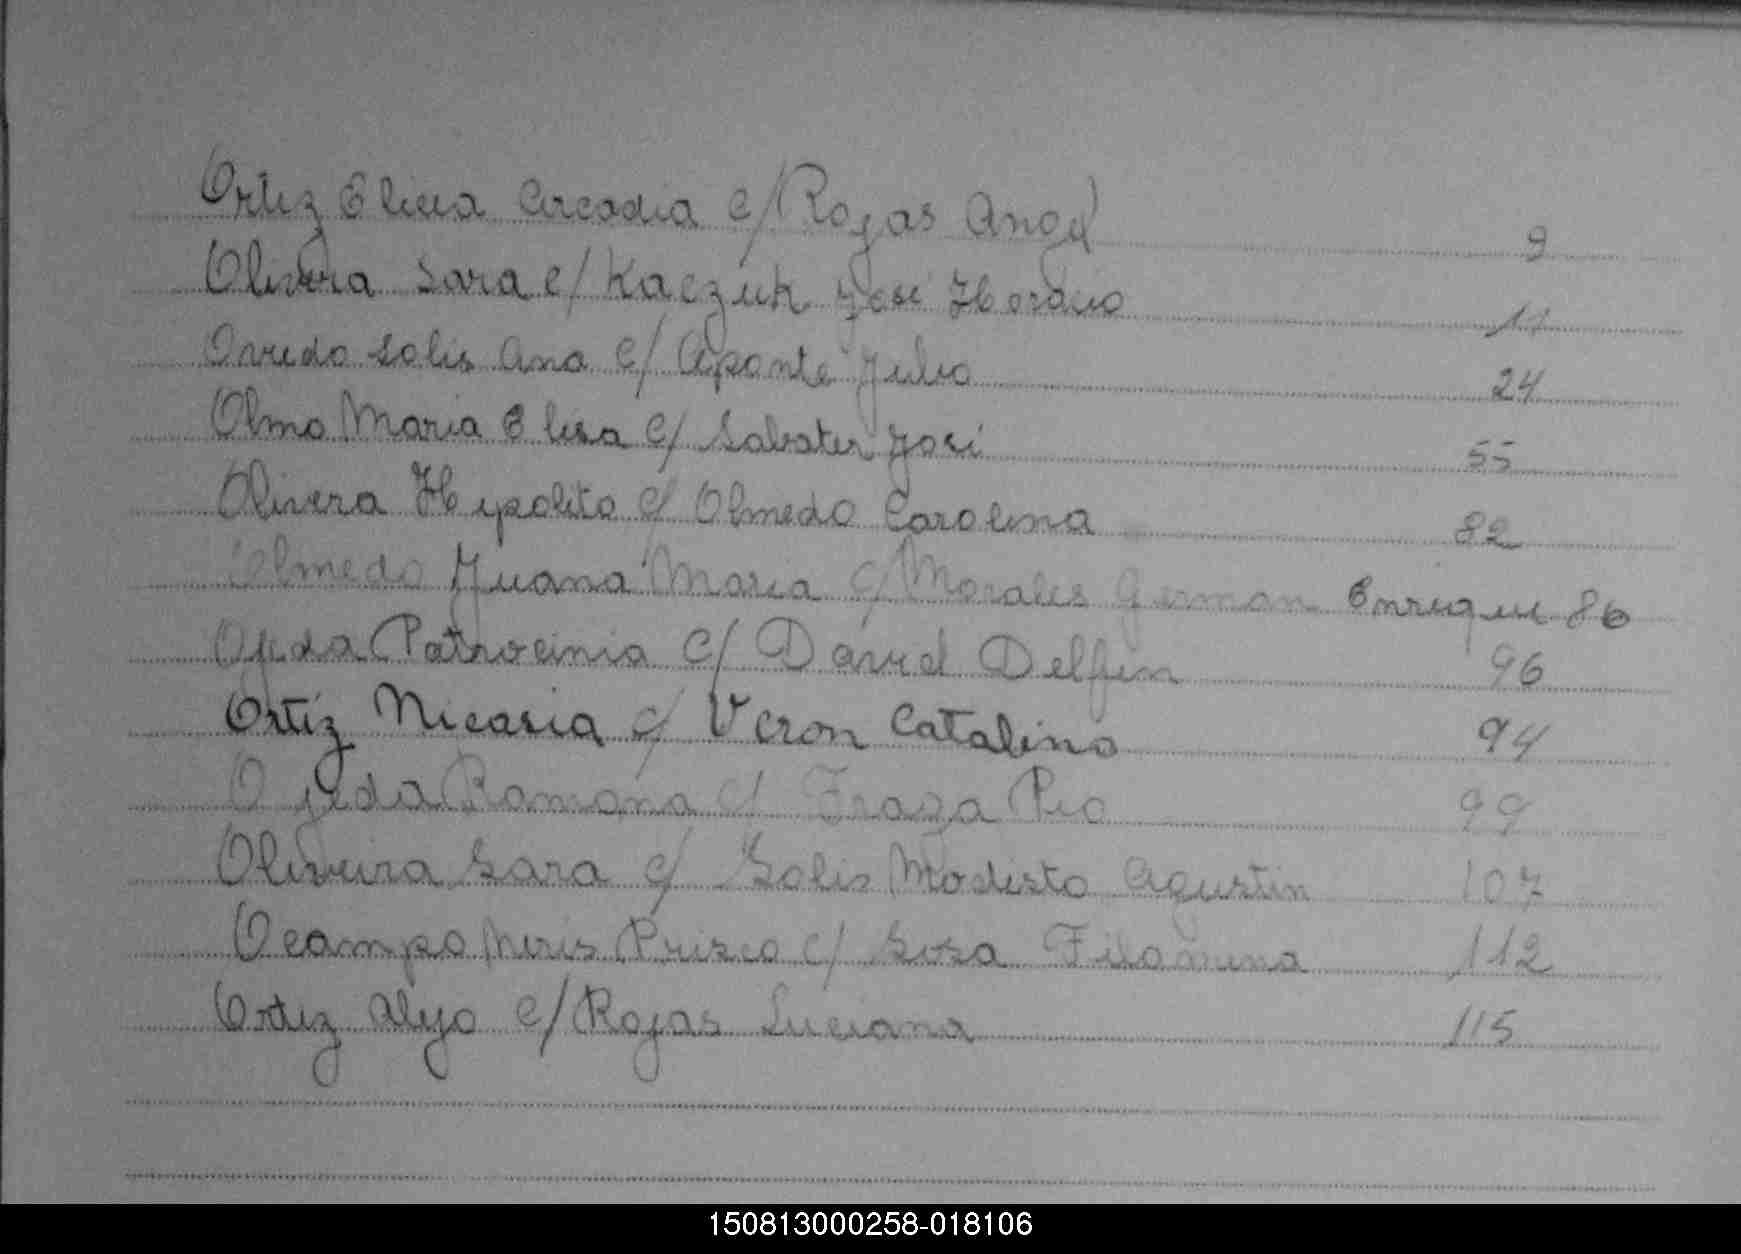 Ortiz Elicia Arcadia c/ Rojas Angel 9
Olivera Sara c/ Kaczuk José Horacio
Oviedo Solis Ana c/ Aponte Julio 24
Olmo Maria Elisa c/ Sabater José 55
Olivera Hipolito c/ Olmedo Carolina 82
Olmedo Juana Maria c/ Morales German Enrique 86
Ojeda Patrocinia c/ David Delfin 96
Ortiz Nicasia c/ Veron Catalino 94
Ojeda Ramona c/ Fraga Pio 99
Oliveira Sara c/ Solis Modesto Agustin 107
Ocampo Prisco c/ Sosa Filomena 112
Ortiz Alejo c/ Rojas Luciana 115
150813000258-018106